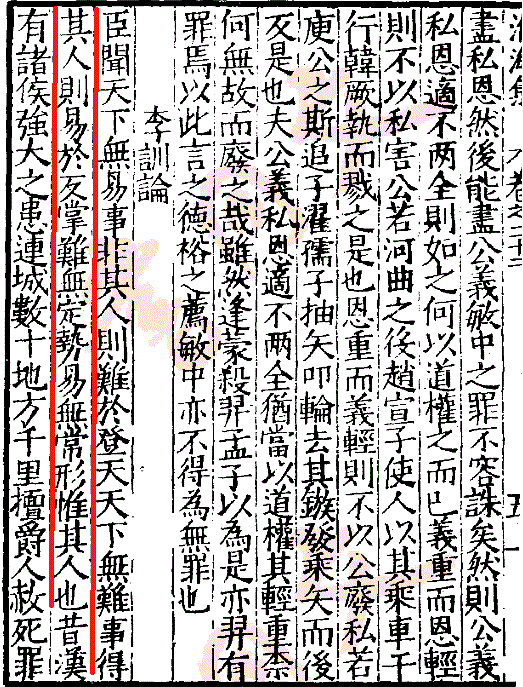 盡私恩然後能盡公義敏中之罪不容誅矣然則公義
私恩適不两全則如之何以道權之而已義重而恩輕
則不以私害公若河曲之後趙宣子使人以其乘車干
行韓厥執而戮之是也恩重而義輕則不以公廢私若
庾公之斯追子濯孺子抽矢叩輪去其鏃發乘矢而後
反是也夫公義私恩適不两全猶當以道權其輕重柰
何無故而廢之哉雖然逢蒙殺羿孟子以為是亦羿有
罪焉以此言之德裕之薦敏中亦不得為無罪也
李訓論
臣聞天下無易事非其人則難於登天天下無難事得
其人則易於反掌難無定勢易無常形惟其人也昔漢
有諸侯強大之患連城數十地方千里擅爵人赦死罪